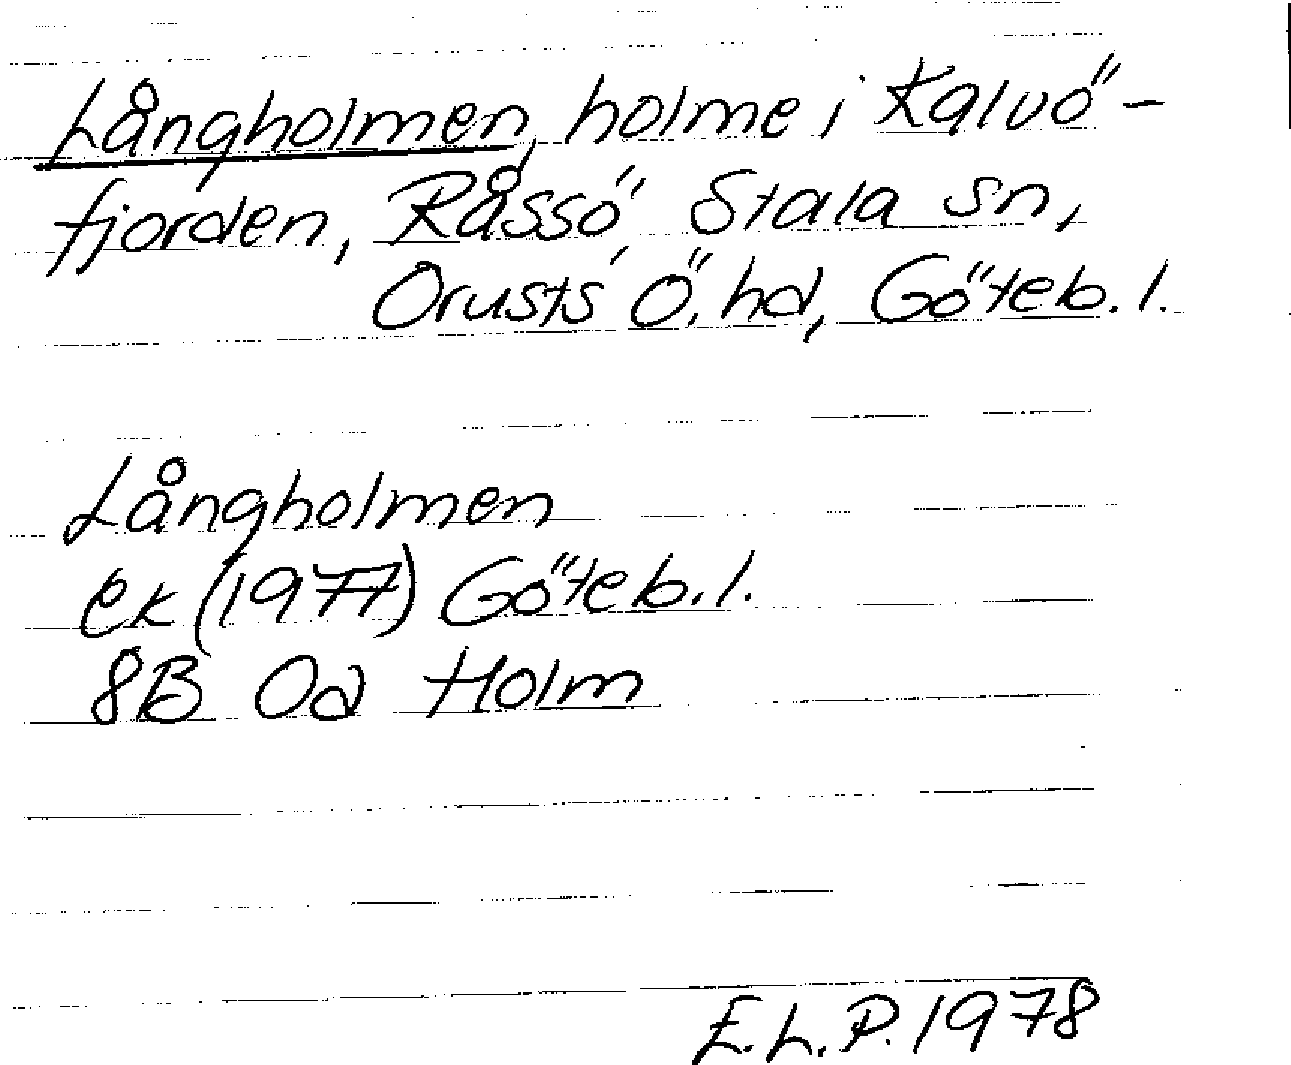 Långholmen, holme i Kalvö-
fjorden, Råssö, Stala sn,
Orusts Ö. hd, Göteb. l.
Långholmen
ek (1977) Göteb. l.
8B 0d Holm
E.L.P. 1978